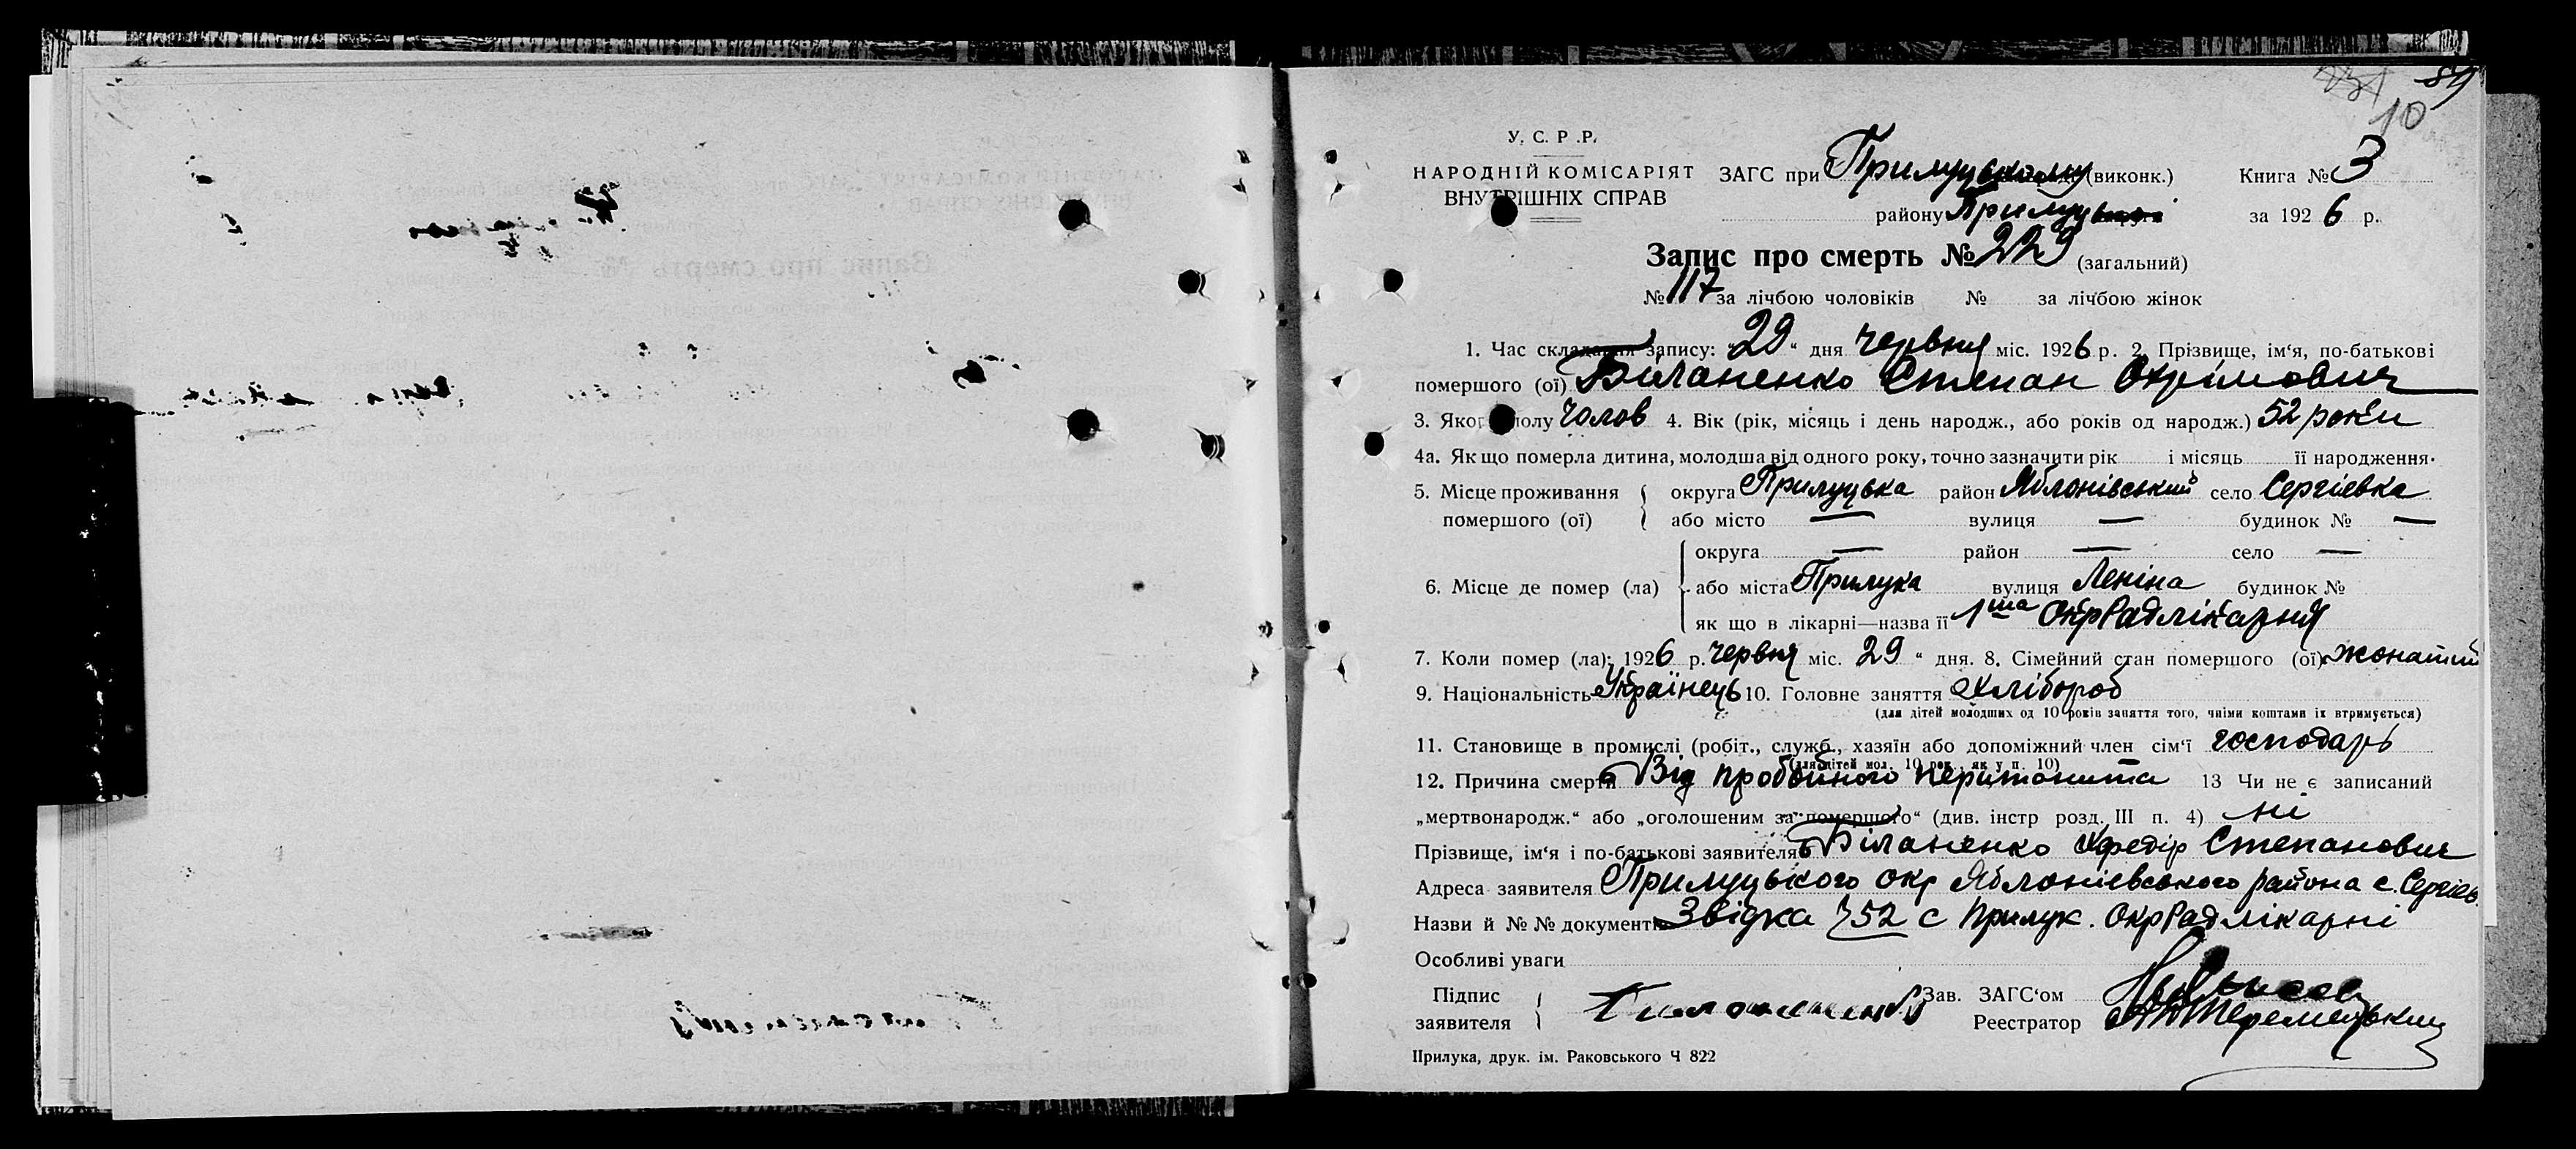 89
10
У. С. Р. Р.
НАРОДНІЙ КОМІСАРІЯТ
ВНУТРІШНІХ СПРАВ
ЗАГС при Прилуцькому (виконк.) Книга № 3
району Прилуцької за 1926 р.
Запис про смерть № 229 (загальний)
№ 117 за лічбою чоловіків № за лічбою жінок
1. Час складання запису: „29“ дня червня міс. 1926 р. 2. Прізвище, ім‘я, по-батькові
помершого (ої) Біланенко Степан Охрімович
3. Якого полу чолов 4. Вік (рік, місяць і день народж., або років од народж.) 52 роки
4а. Як що померла дитина, молодша від одного року, точно зазначити рік і місяць її народження.
5. Місце проживання помершого (ої) { округа Прилуцька район Яблонівський село Сергієвка
або місто — вулиця — будинок № —
6. Місце де помер (ла) { округа — район — село —
або міста Прилука вулиця Леніна будинок №
як що в лікарні—назва її 1ша ОкрРадлікарня
7. Коли помер (ла): 1926 р. червня міс. 29 “ дня. 8. Сімейний стан помершого (ої) жонатий
9. Національність Українець 10. Головне заняття Хлібороб
(для дітей молодших од 10 років заняття того, чиїми коштами їх втримується)
11. Становище в промислі (робіт., служб., хазяїн або допоміжний член сім‘ї господарь
(для дітей мол. 10 рок., як у п. 10)
12. Причина смерти Від пробойного перитонита 13 Чи не є записаний
„мертвонародж.“ або „оголошеним за помершого“ (див. інстр розд. III п. 4) ні
Прізвище, ім‘я і по-батькові заявителя Біланенко Хфедір Степанович
Адреса заявителя Прилуцького окр Яблонієвського района с. Сергієв.
Назви й № № документів Звідка 752 с Прилук. ОкрРадлікарні
Особливі уваги
Підпис заявителя { Биланенко Зав. ЗАГС‘ом
Реєстратор
Прилука, друк. ім. Раковського Ч 822